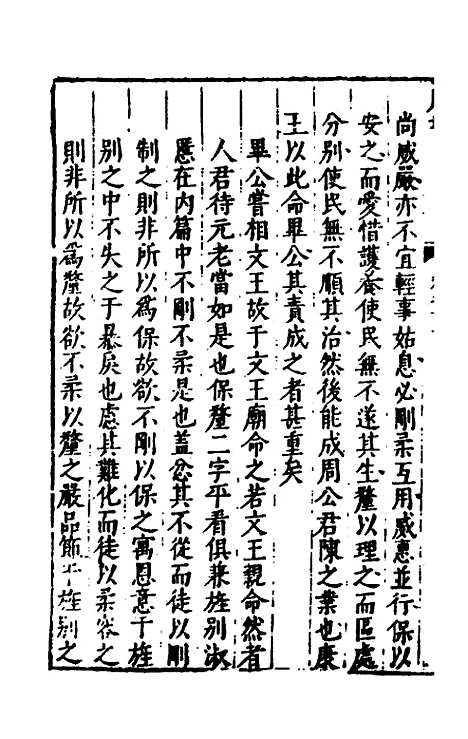 尚威嚴亦不宜輕事姑息必剛柔互用威惠並行保以
安之而愛惜護養使民無不遂其生釐以理之而區處
分別使民無不順其治然後能成周公君陳之業也康
王以此命畢公其責成之者甚重矣
畢公嘗相文王故于文王廟命之若文王親命然者
人君待元老當如是也保釐二字平看俱兼旌別淑
慝在内篇中不剛不柔是也蓋忿其不從而徒以剛
制之則非所以爲保故欲不剛以保之寓恩意于旌
别之中不失之于暴戾也慮其難化而徒以柔容之
則非所以爲釐故欲不柔以釐之嚴品節于旌别之